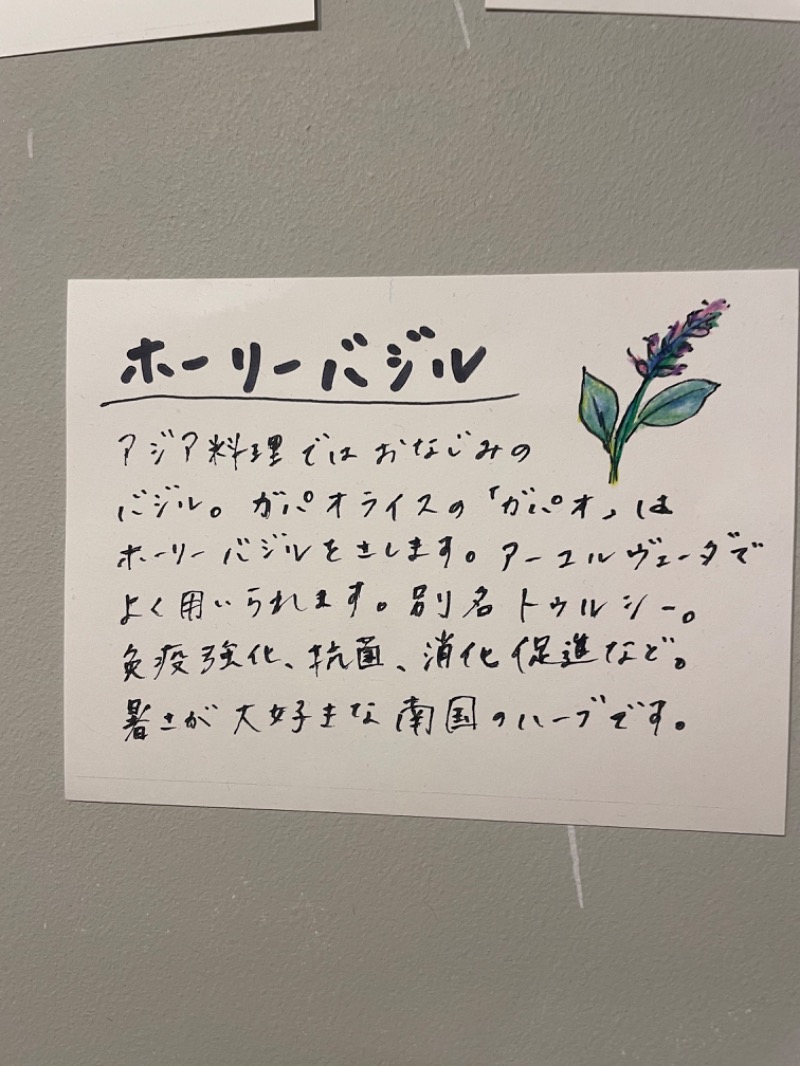 ホーリーバジル
アジア料理ではおなじみの
バジル。ガパオライスの「ガパオ」は
ホーリーバジルをさします。アーユルヴェーダで
よく用いられます。別名トゥルシー。
免疫強化、抗菌、消化促進など。
暑さが大好きな南国のハーブです。